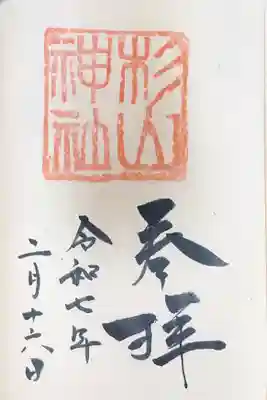 杉山
神社
奉拝
令和七年
二月十六日